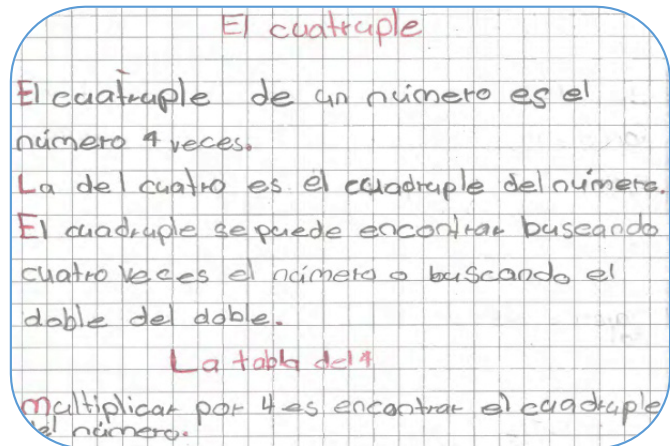 El cuatruple
El cuatruple de un número es el
número 4 veces.
La del cuatro es el cuadruple del número.
El cuadruple se puede encontrar buscando
cuatro veces el número o buscando el
doble del doble.
La tabla del 4
multiplicar por 4 es encontrar el cuadruple
del número.